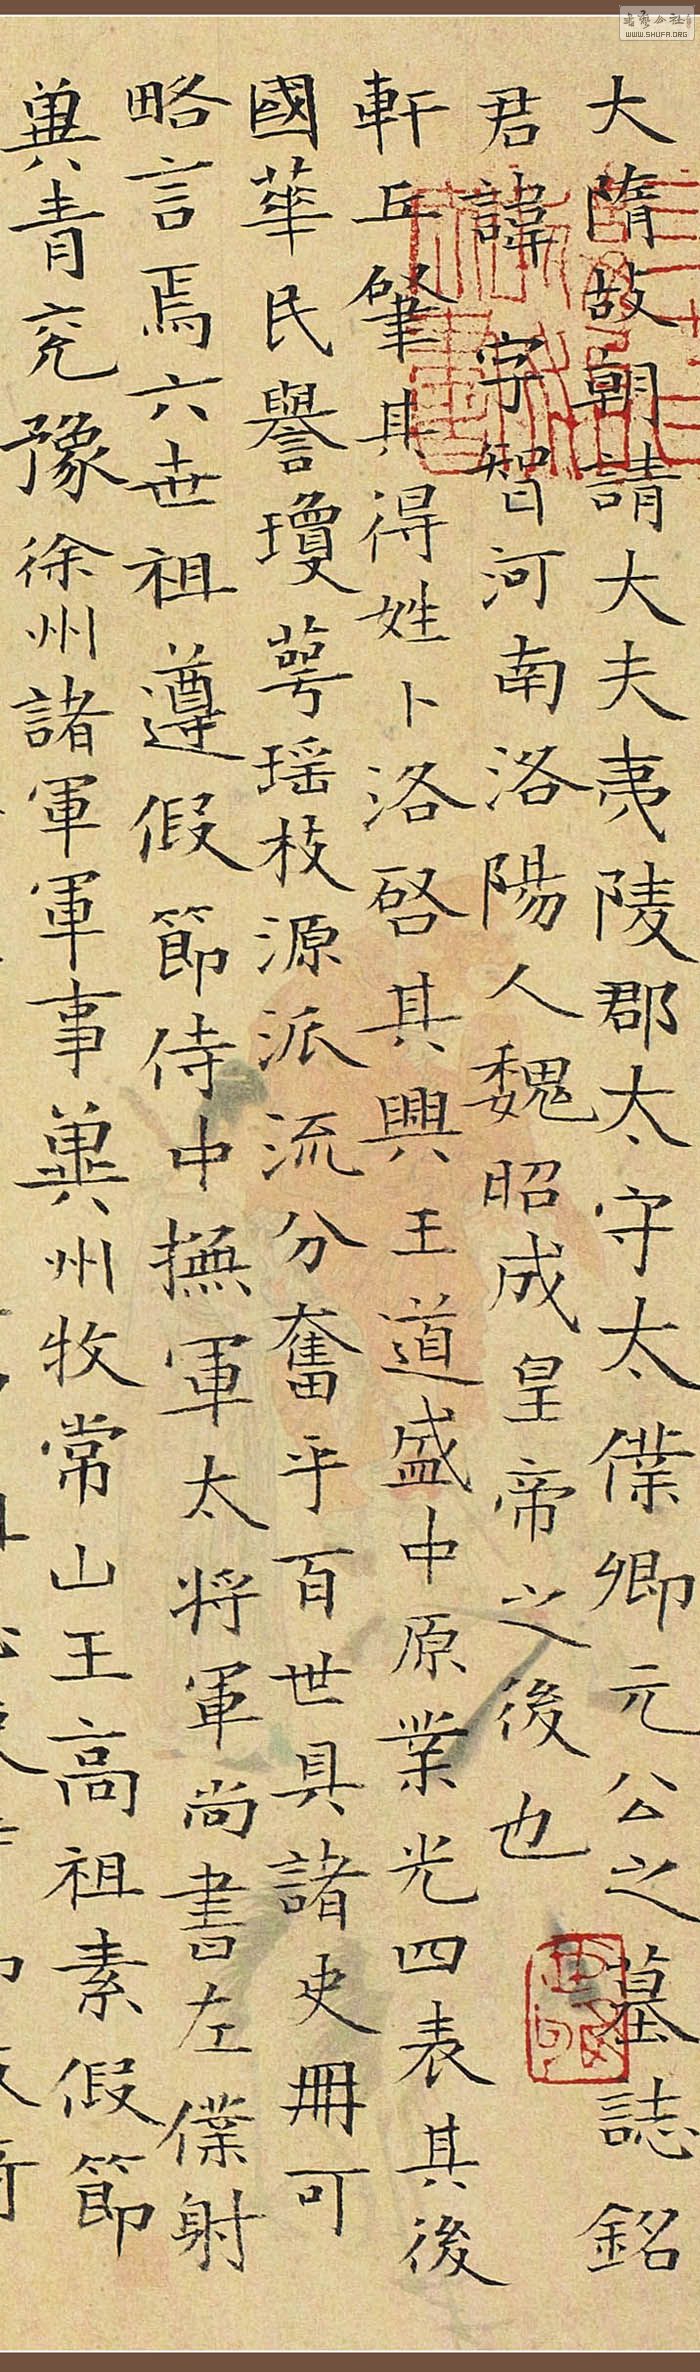 大隋故朝請大夫夷陵郡太守太僕卿元公之墓誌銘
君諱 字智河南洛陽人魏昭成皇帝之後也
軒丘肇其得姓卜洛啓其興王道盛中原業光四表其後
國華民譽瓊萼瑶枝源派流分奮乎百世具諸史冊可
略言焉六世祖遵假節侍中撫軍太将軍尚書左僕射
兾青兖豫徐州諸軍軍事兾州牧常山王高祖素假節
WWW.SHUFA.ORG